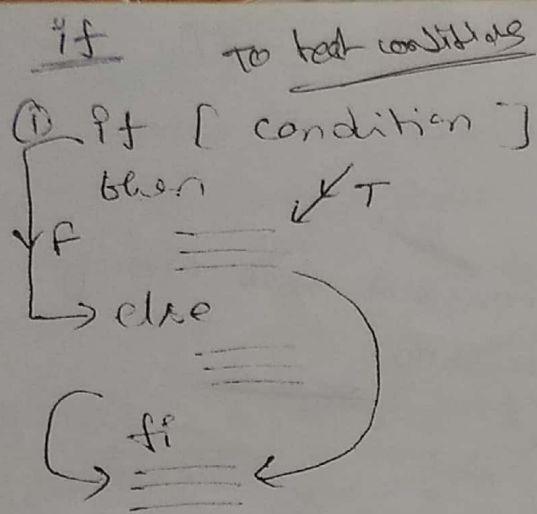 if To test conditions
① if [ condition ]
then
T
F
else
fi